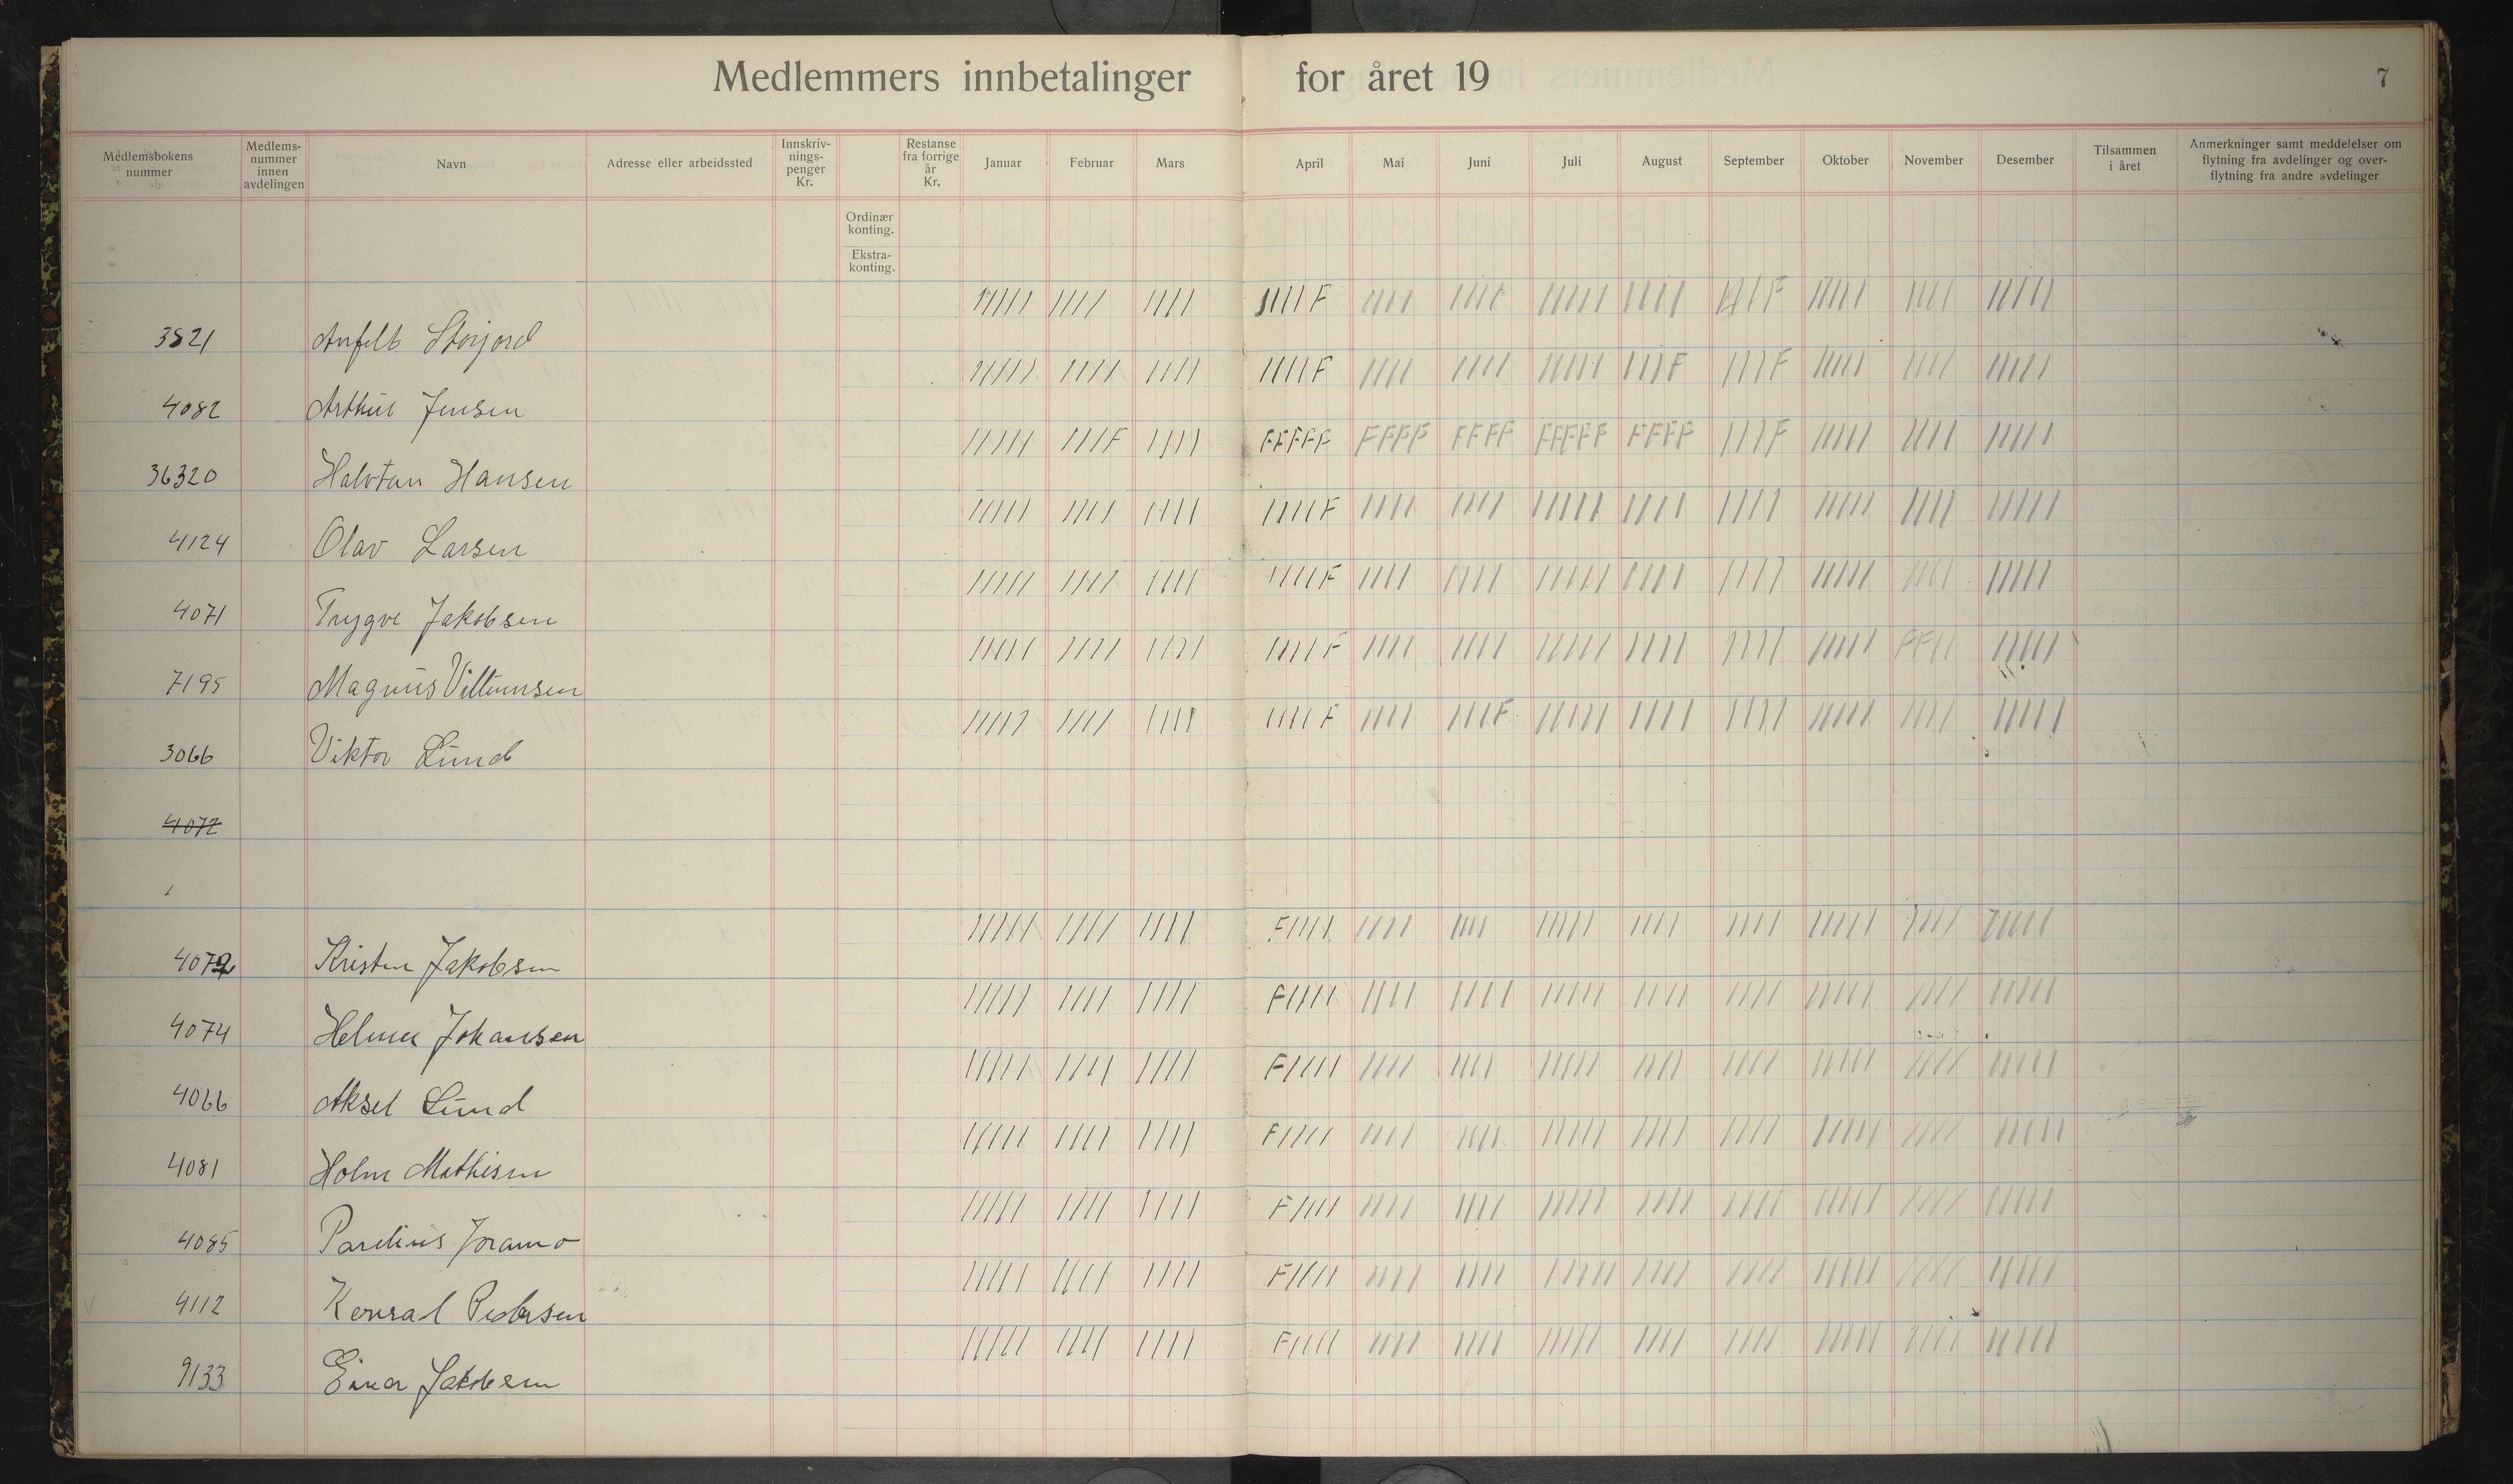 Medlemmers innbetalinger for året 19
7
Medlemsbokens nummer
Medlems-nummer innen avdelingen
Navn
Adresse eller arbeidssted
Innskriv-nings-penger Kr.
Restanse fra forrige år Kr.
Januar
Februar
Mars
April
Mai
Juni
Juli
August
September
Oktober
November
Desember
Tilsammen i året
Anmerkninger samt meddelelser om flytning fra avdelinger og over-flytning fra andre avdelinger
Ordinær konting.
Ekstra-konting.
///// //// //// ////F //// //// ///// //// ///F ///// //// /////
3821 Anfelt Storjord
///// //// //// ////F //// //// ///// ///F ///F ///// //// /////
4082 Arthur Jensen
///// ///F //// FFFFF FFFF FFFF FFFFF FFFF ///F ///// //// /////
36320 Halvtan Hansen
///// //// //// ////F //// //// ///// //// //// ///// //// /////
4124 Olav Larsen
///// //// //// ////F //// //// ///// //// //// ///// //// /////
4071 Trygve Jakobsen
///// //// //// ////F //// //// ///// //// //// ///// FF// /////
7195 Magnus Villumsen
///// //// //// ////F //// ///F ///// //// //// ///// //// /////
3066 Viktor Lund
4072
///// //// //// F//// //// //// ///// //// //// ///// //// /////
4072 Kristen Jakobsen
///// //// //// F//// //// //// ///// //// //// ///// //// /////
4074 Helmer Johansen
///// //// //// F//// //// //// ///// //// //// ///// //// /////
4066 Aksel Lund
///// //// //// F//// //// //// ///// //// //// ///// //// /////
4081 Holm Mathisen
///// //// //// F//// //// //// ///// //// //// ///// //// /////
4085 Parelius Joramo
///// //// //// F//// //// //// ///// //// //// ///// //// /////
4112 Konral Pedersen
///// //// //// F//// //// //// ///// //// //// ///// //// /////
9133 Einar Jakobsen